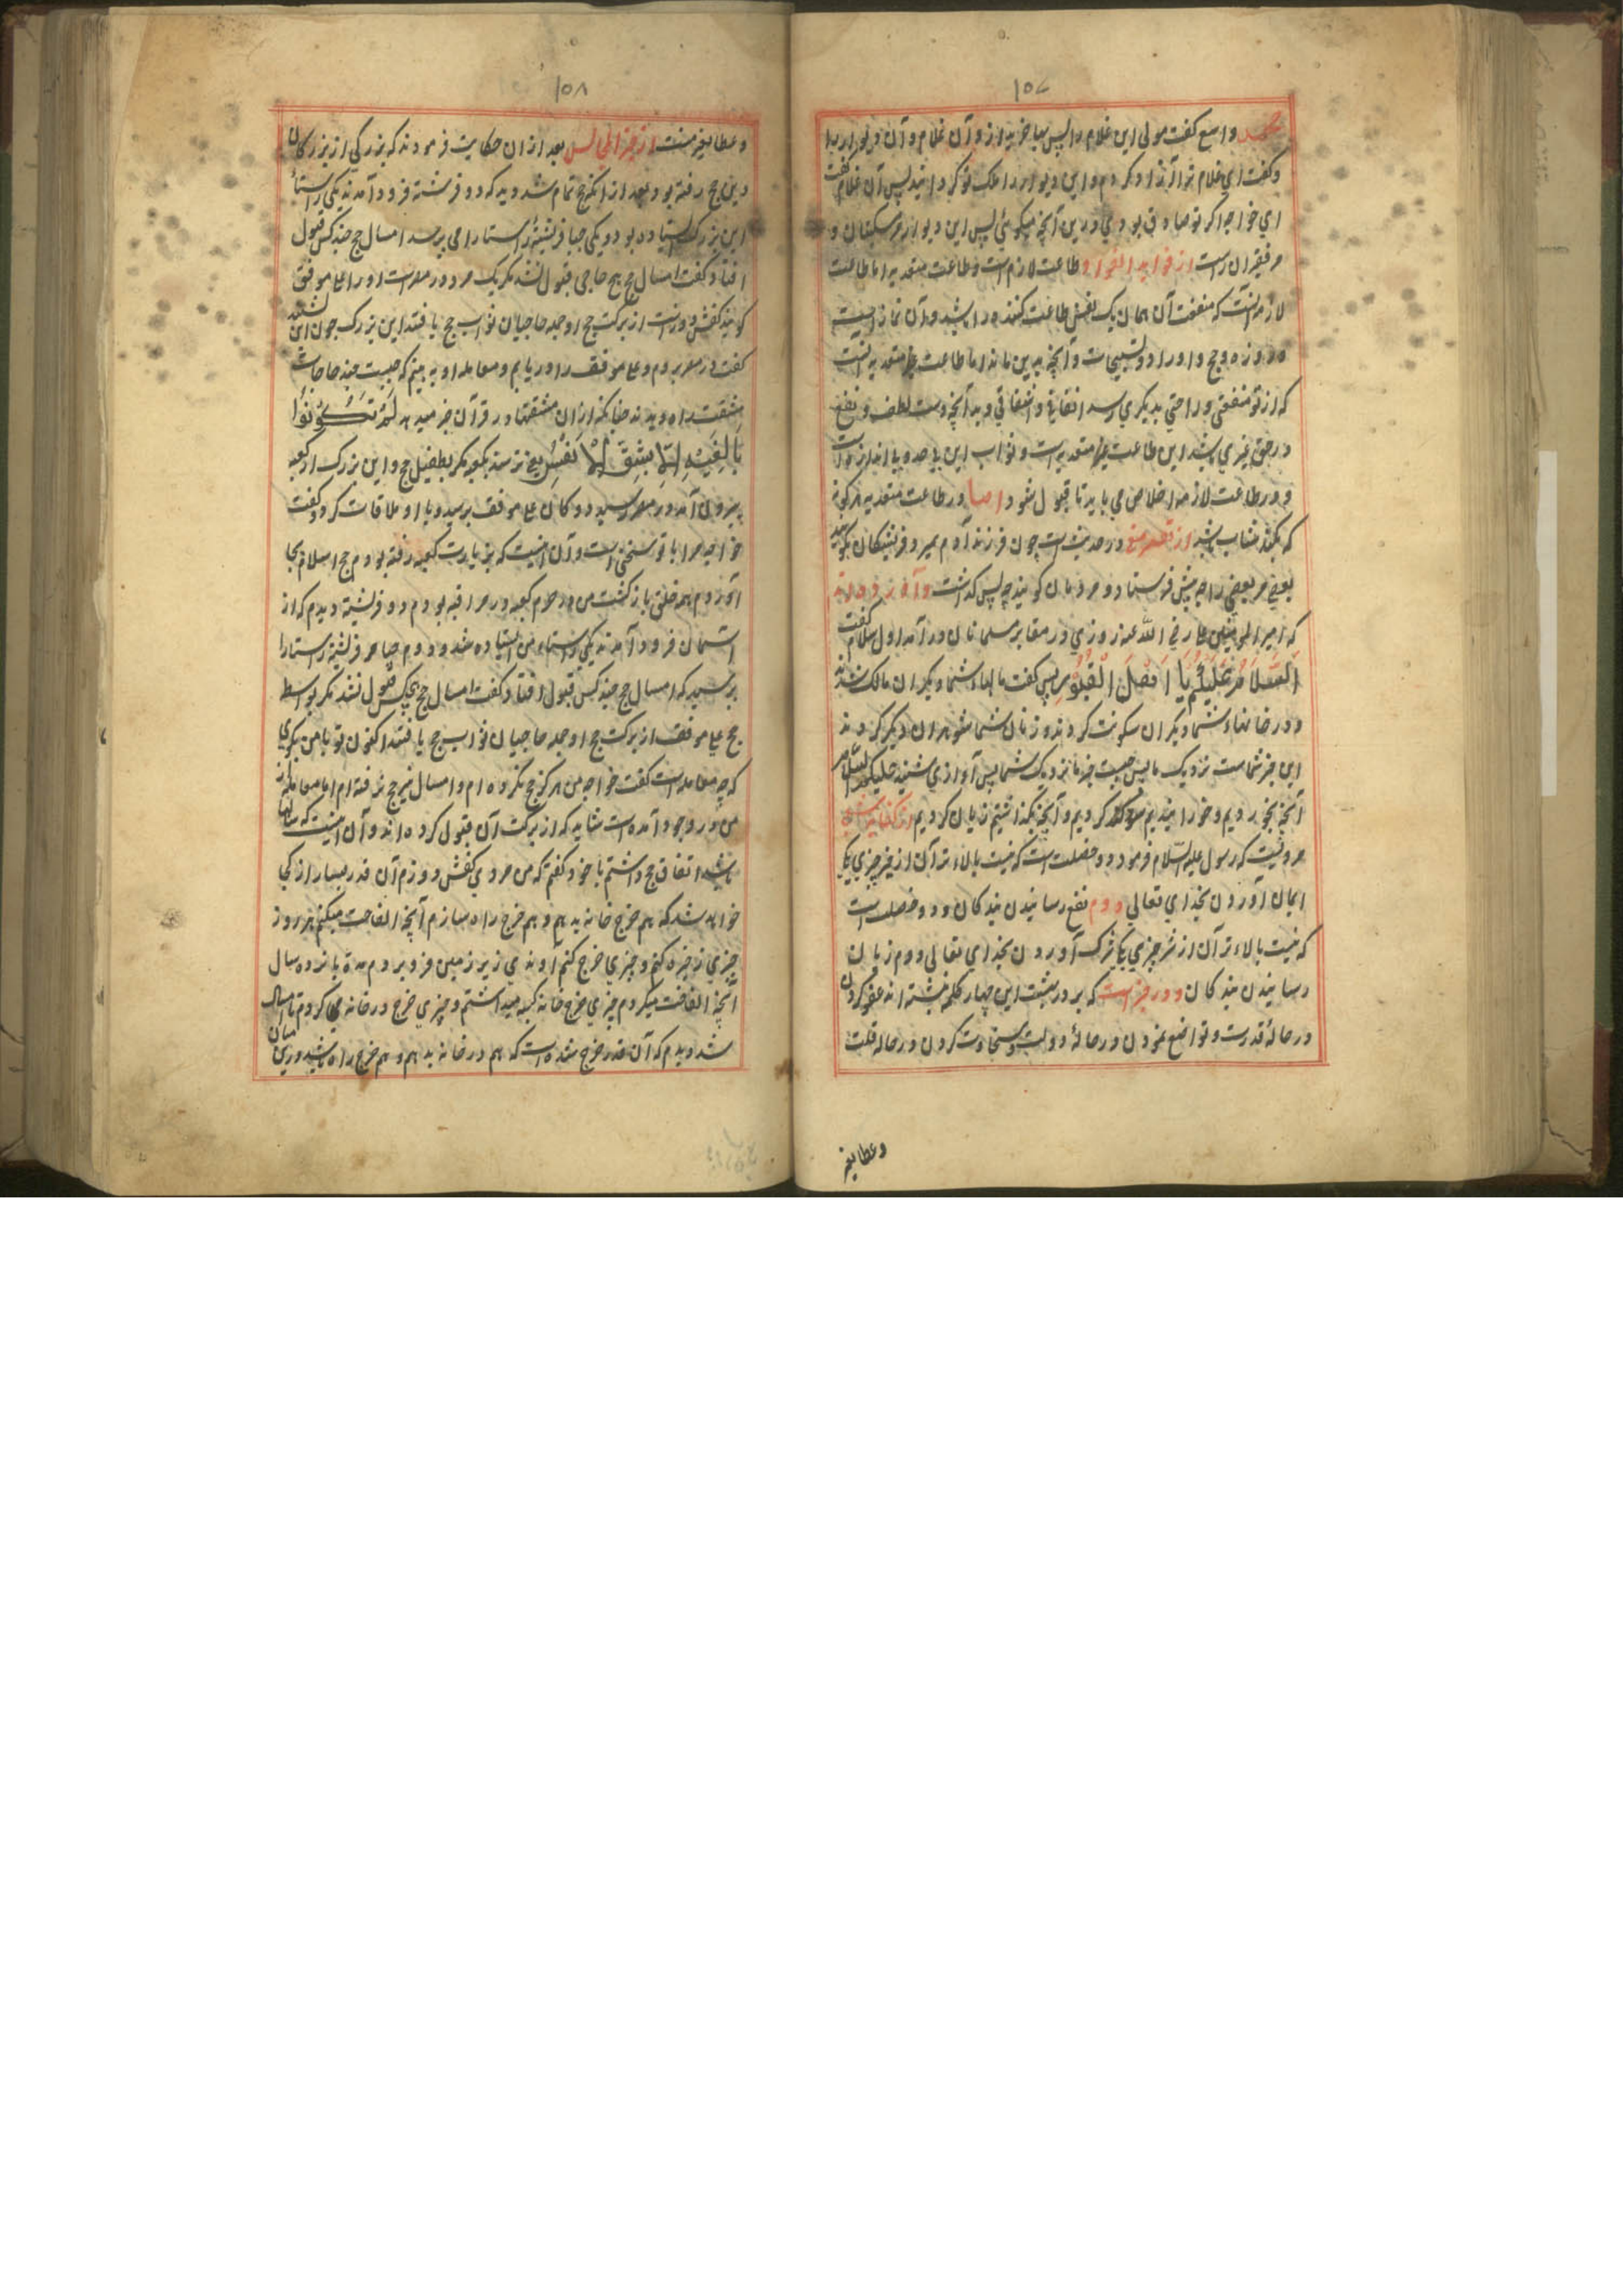 ۱۵۷
محمد واسع گفت مولی این غلام را پس بیا خرید از و آن غلام و آن دیوار را
و گفت ای غلام ترا آزاد کردم و این دیوار را ملک تو کردانید پس آن غلام گفت
ای خواجه اگر تو صادق بودی درین آنچه میگوئی پس این دیوار مر مسکینان و
مر فقیران راست از فواید الفواد و طاعت لازم است و طاعت متعدیه اما طاعت
لازمه آنست که منفعت آن همان یک نفس طاعت کننده را باشد و آن نماز است
و روزه و حج و اوراد و تسبیحات و آنچه بدین ماند اما طاعت متعدیه آنست
که از تو منفعتی و راحتی بدیگری رسد انفاقی و اشفاقی و بد آنچه دست لطف و نفع
در حق غیری باشد این طاعت متعدیه است و ثواب این بیحد و بی اندازه است
و در طاعت لازمه اخلاص می باید تا قبول شود اما در طاعت متعدیه هر گونه
که بکند مثاب باشد از در حدیث است چون فرزند آدم بمیرد فریشتگان بگویند
بعضی مر بعضی را چه پیش فرستاد و مردمان گویند چه پس گذاشت و آورده اند
که امیر المومنین علی رضی الله عنه روزی در مقابر مسلمانان در آمد اول سلام گفت
اَلسَّلَامُ عَلَیْکُمْ یَا اَهْلَ الْقُبُوْرِ پس گفت مالهاء شما دیگران مالک شدند
و در خانهاء شما دیگران سکونت کردند و زنان شما شوهران دیگر کردند
این خبر شماست نزدیک ما پس چیست خبر ما نزدیک شما پس آوازی شنید علیکم السلام
آنچه بخوردیم و خورانیدیم سود کردیم و آنچه بگذاشتیم زیان کردیم از کفایه شعبی
مرویست که رسول علیه السلام فرمود دو خصلت است که نیست بالاء تر آن از خیر چیزی یکی
ایمان آوردن بخدای تعالی دوم نفع رسانیدن بندگان و دو خصلت است
که نیست بالاء تر آن از شر چیزی یکی شرک آوردن بخدای تعالی دوم زیان
رسانیدن بندگان و در خبر است که بر در بهشت این چهار کلمه نبشته اند عفو کردن
در حالهٔ قدرت و تواضع نمودن در حالهٔ دولت و سخاوت کردن در حاله قلت
و عطا بغیر
۱۵۸
و عطا بغیر منت از خیر المجالس بعد از ان حکایت فرمودند که بزرگی از بزرگان
دین حج رفته بود بعد از انکه حج تمام شد دید که دو فرشته فرود آمدند یکی راستاء
این بزرگ استاده بود و یکی چپا فریشتهٔ راستا را می پرسد امسال حج چند کس قبول
افتاد گفت امسال حج هیچ حاجی قبول نشد مگر یک مرد در مصر است او را علی موفق
گویند کفش دوز است از برکت حج او جمله حاجیان ثواب حج یافتند این بزرگ چون این بشنید
گفت در مصر بروم و علی موفق را دریابم و معامله او به بینم که چیست چند حاجات
مشقت راه دیدند چنانکه از ان مشقتها در قرآن خبر میدهد لَمْ تَکُوْنُوْا
بَالِغِیْهِ اِلَّا بِشِقِّ الْاَنْفُسِ یعنی نرسند بکعبه مگر بطفیل حج و این بزرگ از کعبه
بیرون آمد در مصر رسید دوکان علی موفق پرسید و با او ملاقات کرد و گفت
خواجه مرا با تو سخنی است و آن اینست که بزیارت کعبه رفته بودم حج اسلام بجا
آوردم همه خلق بازگشت من در حرم کعبه در مراقبه بودم دو فریشته دیدم که از
آسمان فرود آمدند یکی راستاء من استاده شد و دوم چپا مر فریشته راستا را
پرسید که امسال حج چند کس قبول افتاد گفت امسال حج هیچکس قبول نشد مگر بواسطه
حج علی موفق از برکت حج او جمله حاجیان ثواب حج یافتند اکنون تو با من بگوی
که چه معامله است گفت خواجه من هرگز حج نکرده ام و امسال نیز حج نرفته ام اما معامله از
من در وجود آمده است شاید که از برکت آن قبول کرده اند و آن اینست که سالها
باشد اتفاق حج داشتم با خود گفتم که من مردی کفش دوزم آن قدر بسیار از کجا
خواهد شد که هم خرج خانه بدهم و هم خرج راه سازم آنچه الفاخت میکنم هر روز
چیزی ذخیره کنم و چیزی خرج کنم آوندی زیر زمین فرو بردم مدة پانزده سال
آنچه الفاخت میکردم چیزی خرج خانه کیسه میداشتم و چیزی خرج در خانه می کردم تا امسال
شد دیدم که آن قدر خرج شده است که هم در خانه بدهم و هم خرج راه باشد درین میان